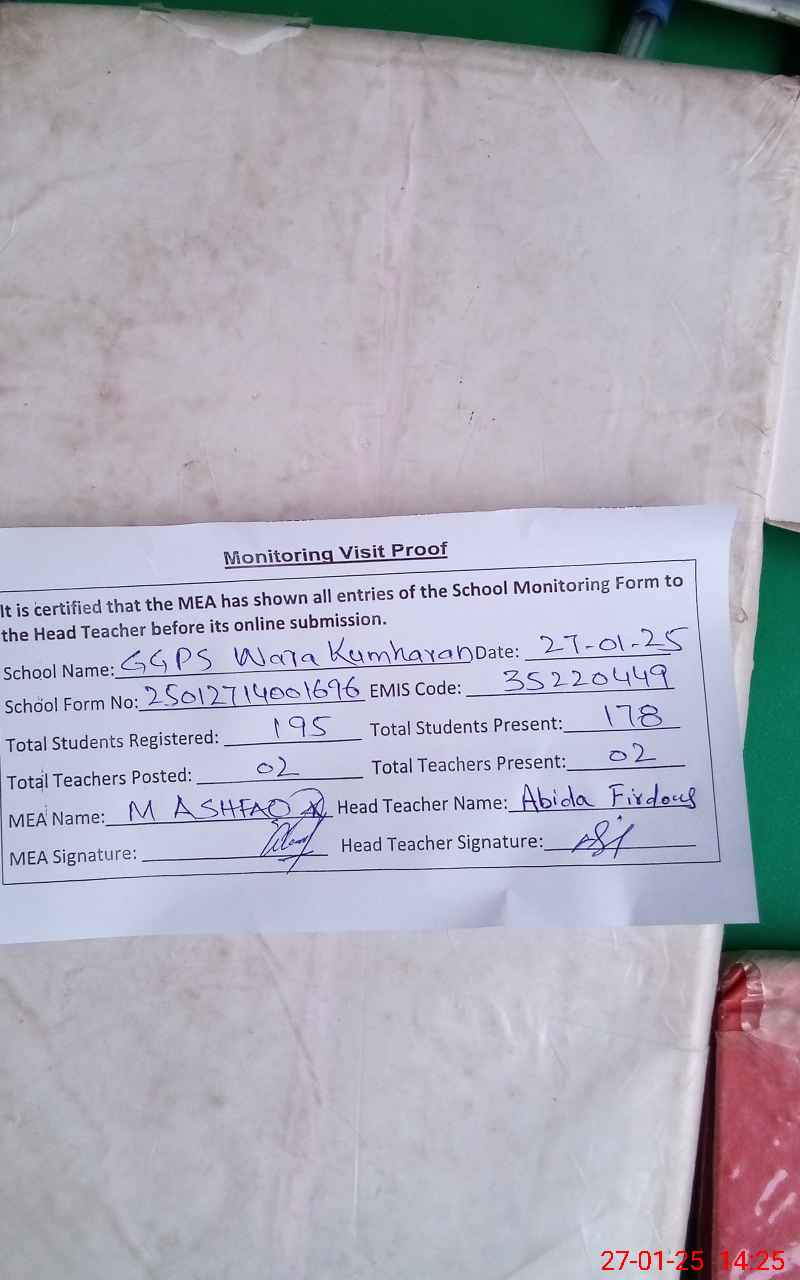 Monitoring Visit Proof
It is certified that the MEA has shown all entries of the School Monitoring Form to
the Head Teacher before its online submission.
School Name: GGPS Wara Kumharan Date: 27-01-25
School Form No: 25012714001696 EMIS Code: 35220449
Total Students Registered: 195 Total Students Present: 178
Total Teachers Posted: 02 Total Teachers Present: 02
MEA Name: M ASHFAQ Head Teacher Name: Abida Firdous
MEA Signature: Head Teacher Signature:
27-01-25 14:25